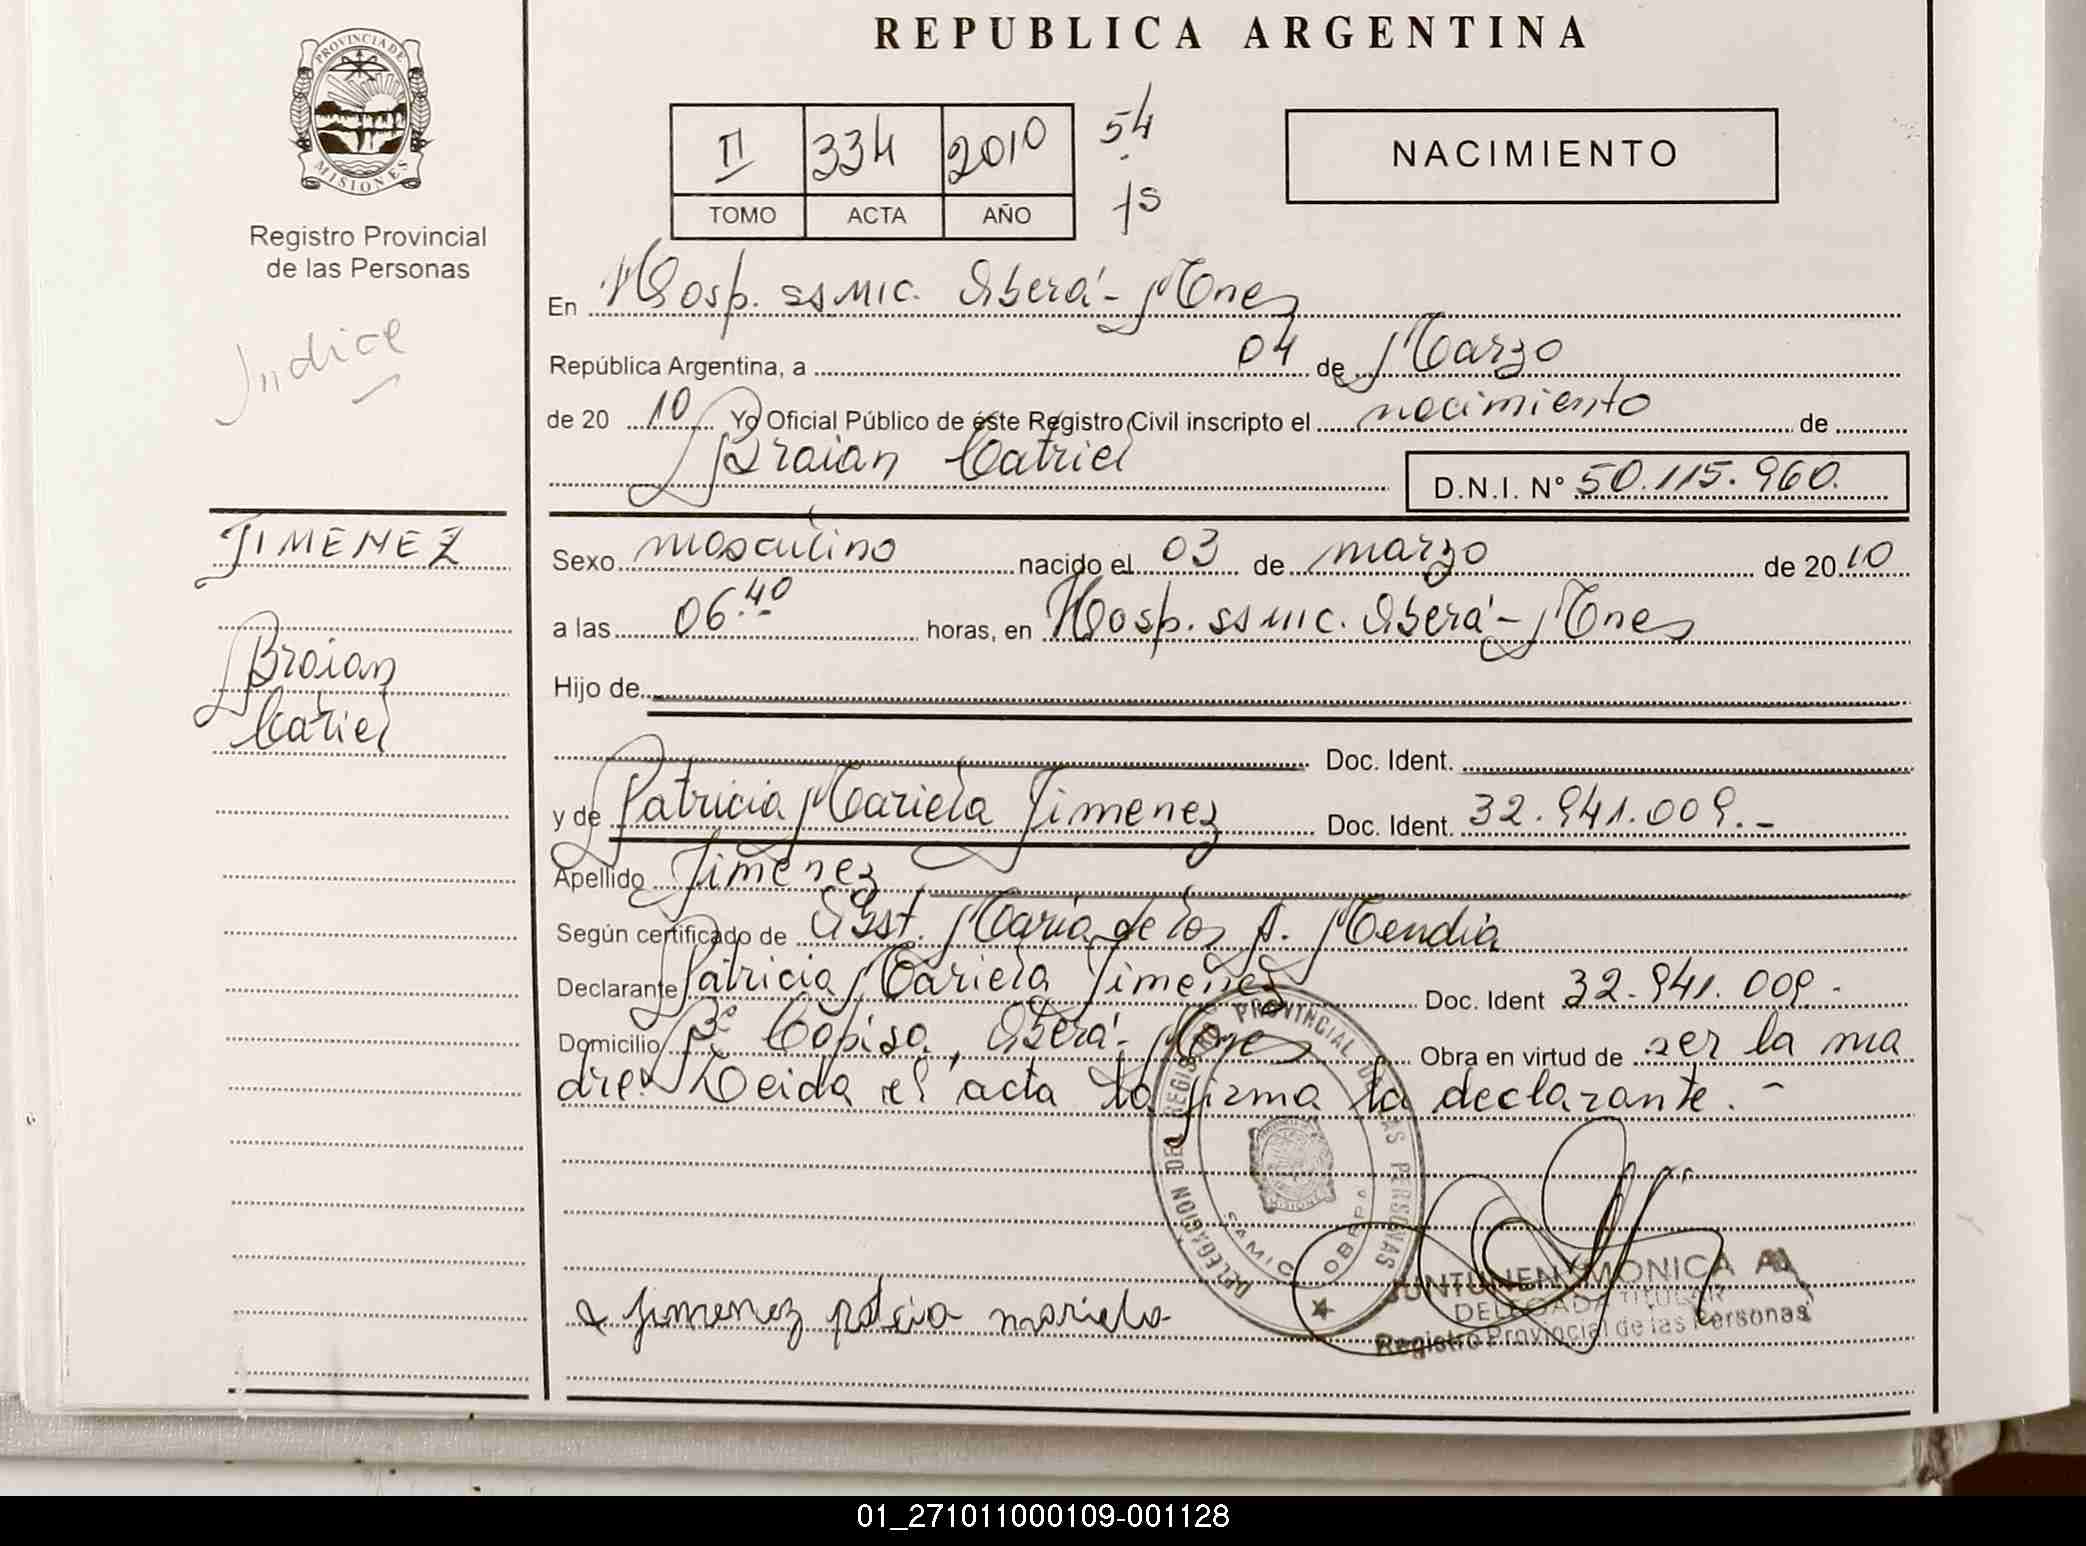 REPUBLICA ARGENTINA
PROVINCIA DE
MISIONES
Registro Provincial
de las Personas
Indice
II 334 2010 54
TOMO ACTA AÑO 15
NACIMIENTO
En Hosp. SAMIC. Oberá - Mnes
República Argentina, a 04 de Marzo
de 20 10 Yo Oficial Público de éste Registro Civil inscripto el nacimiento de
Braian Catriel D.N.I. N° 50.115.960.
JIMENEZ
Braian
Catriel
Sexo masculino nacido el 03 de marzo de 20 10
a las 06.40 horas, en Hosp. SAMIC. Oberá - Mnes
Hijo de
Doc. Ident.
y de Patricia Mariela Jimenez Doc. Ident. 32.941.009.-
Apellido Jimenez
Según certificado de Obst. María de los A. Mendia
Declarante Patricia Mariela Jimenez Doc. Ident 32.941.009.-
Domicilio Bº Copisa, Oberá - Mnes Obra en virtud de ser la ma
dre. Leida el acta la firma la declarante.-
DELEGACION DEL REGISTRO PROVINCIAL DE LAS PERSONAS
SAMIC OBERA
MISIONES
Jimenez patricia mariela
JUNTUNEN MONICA A.
DELEGADA TITULAR
Registro Provincial de las Personas
01_271011000109-001128